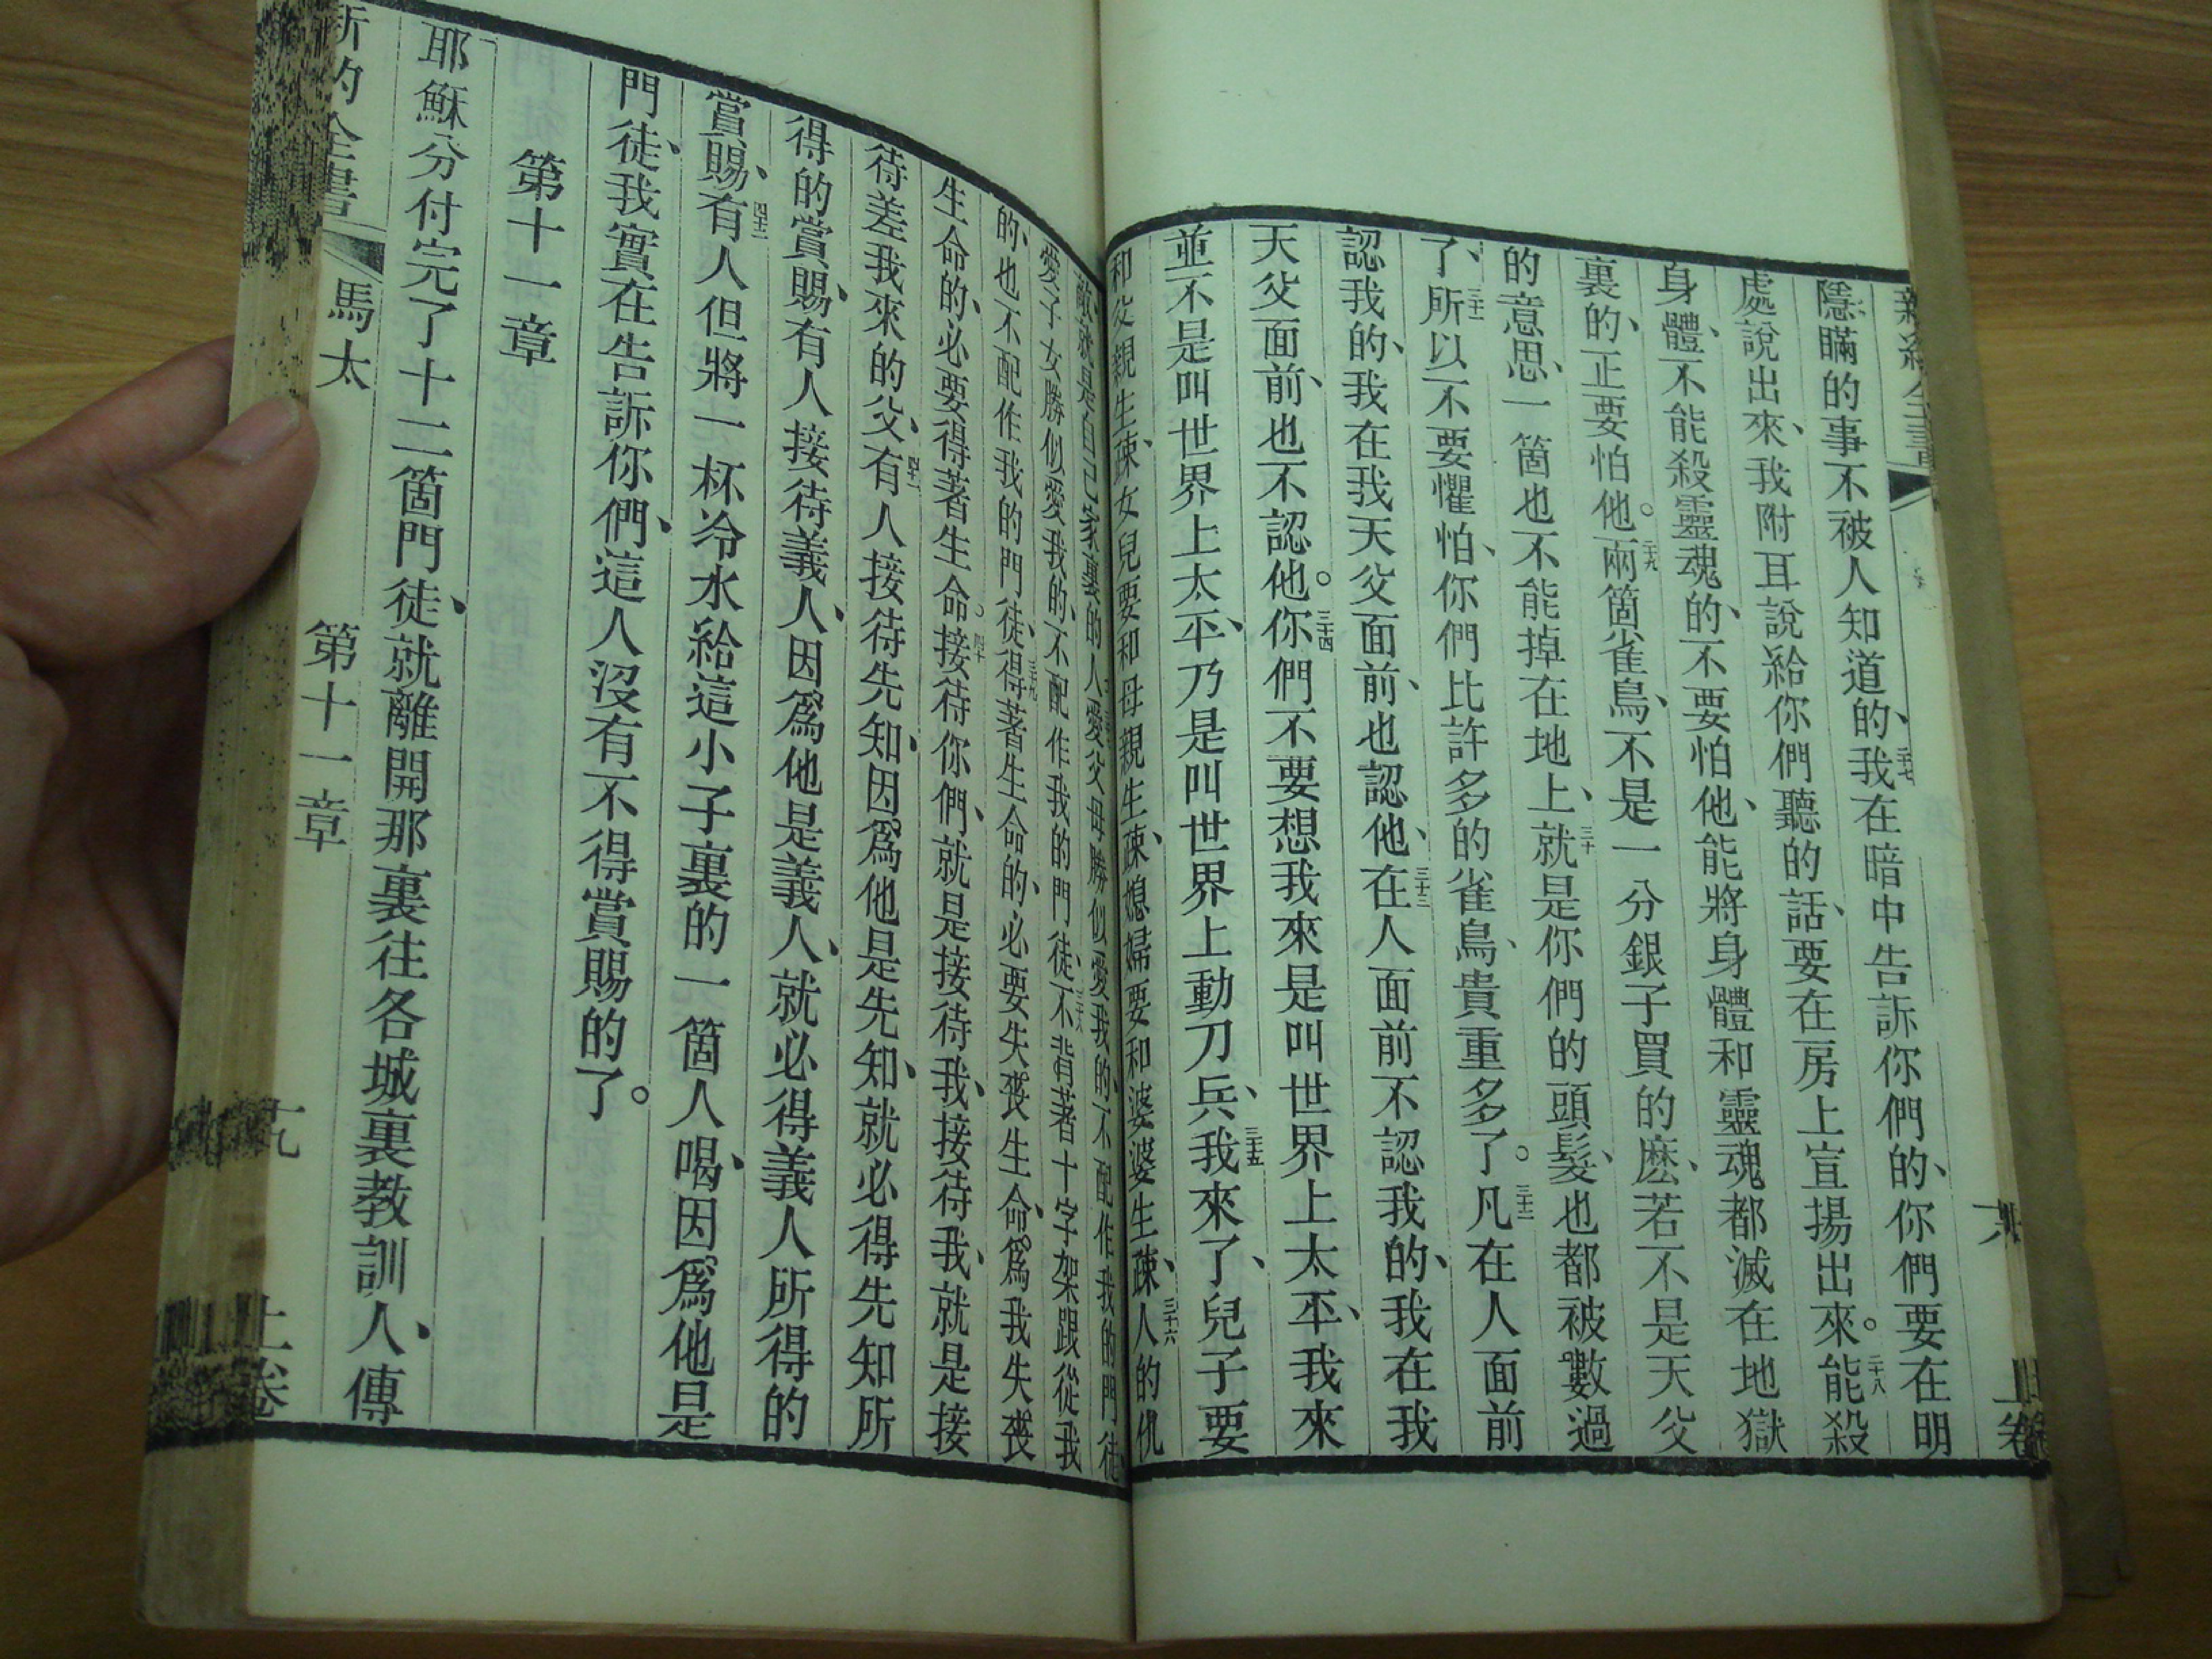 隱瞞的事不被人知道的、二十七我在暗中告訴你們的、你們要在明
處說出來、我附耳說給你們聽的話、要在房上宣揚出來。二十八能殺
身體、不能殺靈魂的、不要怕他、能將身體和靈魂都滅在地獄
裏的、正要怕他。二十九兩箇雀鳥、不是一分銀子買的麽、若不是天父
的意思、一箇也不能掉在地上、三十就是你們的頭髮、也都被數過
了、三十一所以不要懼怕、你們比許多的雀鳥、貴重多了。三十二凡在人面前
認我的、我在我天父面前、也認他、三十三在人面前不認我的、我在我
天父面前、也不認他。三十四你們不要想我來是叫世界上太平、我來
並不是叫世界上太平、乃是叫世界上動刀兵、三十五我來了、兒子要
和父親生疎、女兒要和母親生疎、媳婦要和婆婆生疎、三十六人的仇
敵、就是自己家裏的人愛父母勝似愛我的、不配作我的門徒
愛子女勝似愛我的、不配作我的門徒、三十八不背著十字架跟從我
的、也不配作我的門徒、三十九得著生命的、必要失喪生命、爲我失喪
生命的、必要得著生命。四十接待你們、就是接待我、接待我、就是接
待差我來的父、四十一有人接待先知、因爲他是先知、就必得先知所
得的賞賜、有人接待義人、因爲他是義人、就必得義人所得的
賞賜、四十二有人但將一杯冷水給這小子裏的一箇人喝、因爲他是
門徒、我實在告訴你們、這人沒有不得賞賜的了。
第十一章
耶穌分付完了十二箇門徒、就離開那裏往各城裏教訓人、傳
馬太 第十一章 十九 上卷